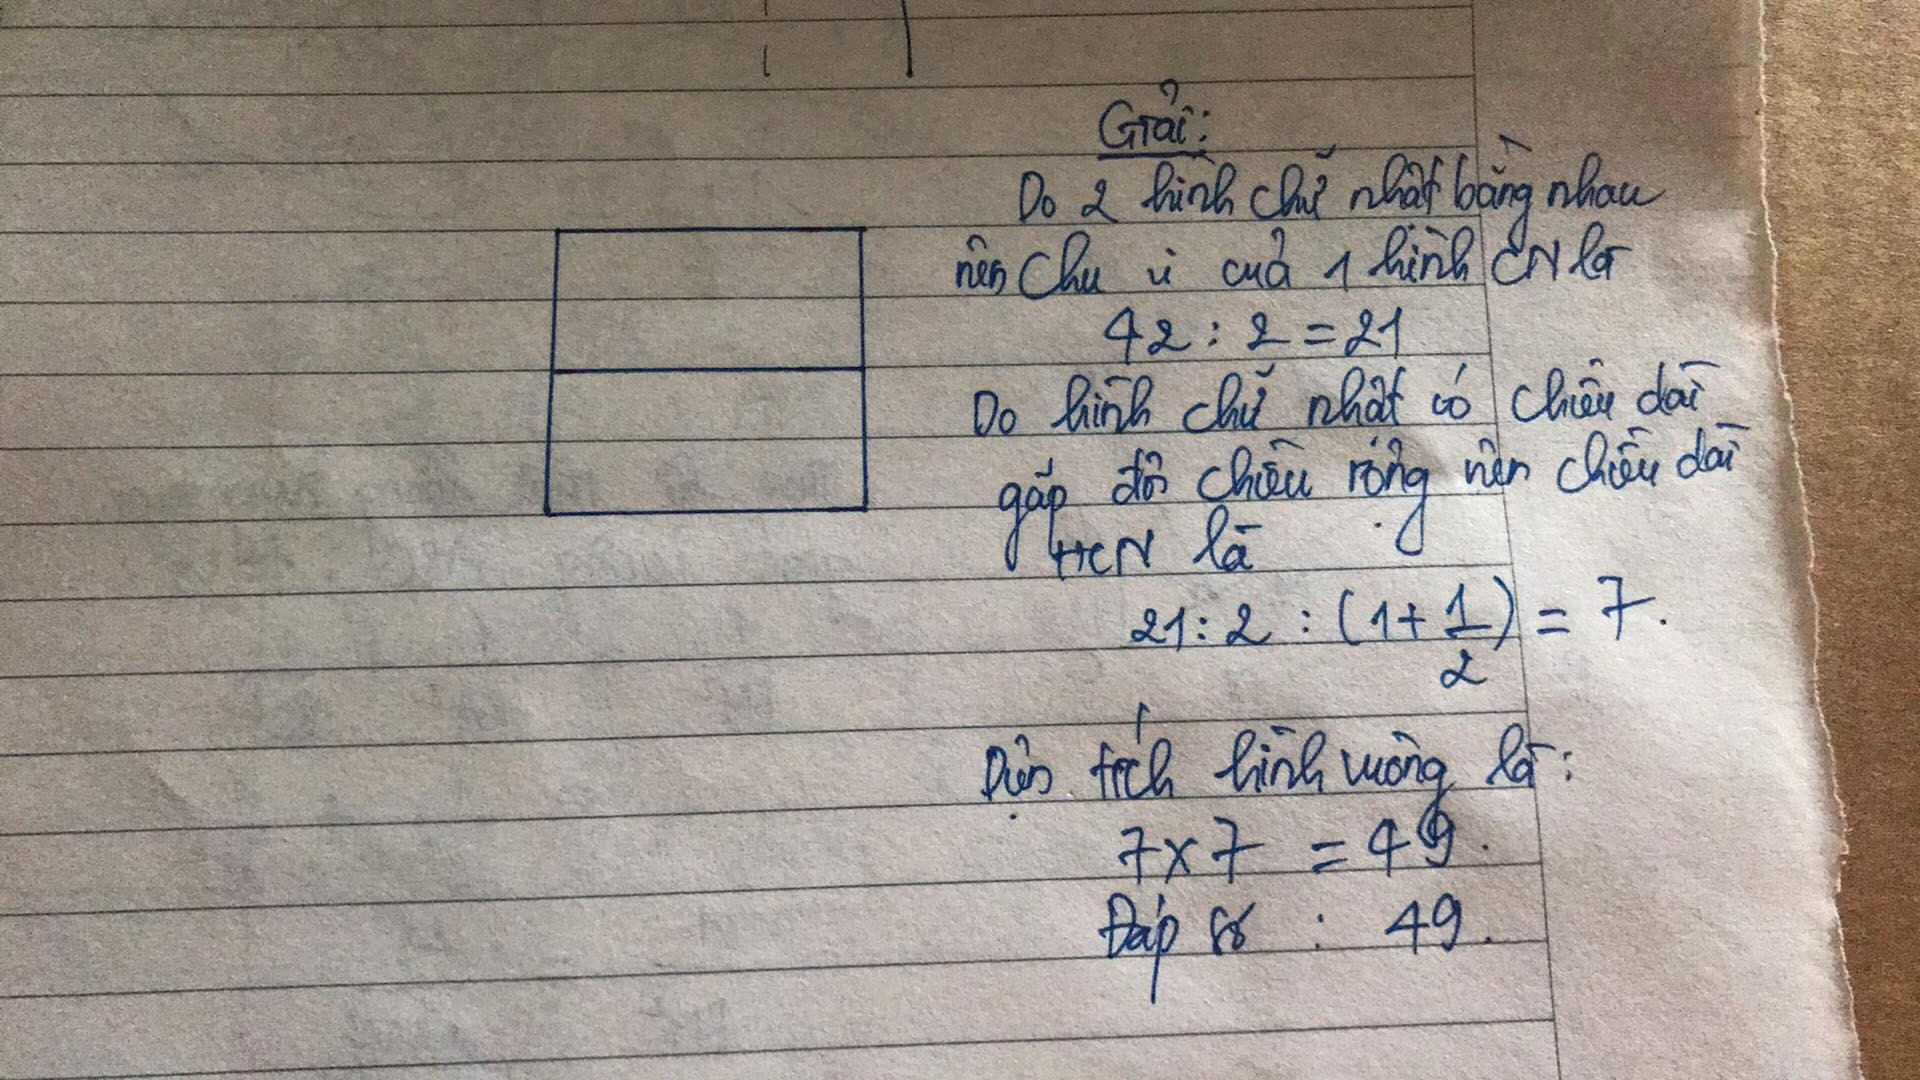 Giải:
Do 2 hình chữ nhật bằng nhau
nên chu vi của 1 hình CN là
42 : 2 = 21
Do hình chữ nhật có chiều dài
gấp đôi chiều rộng nên chiều dài
HCN là
21 : 2 : (1 + 1/2) = 7.
Diện tích hình vuông là:
7 x 7 = 49.
Đáp số : 49.